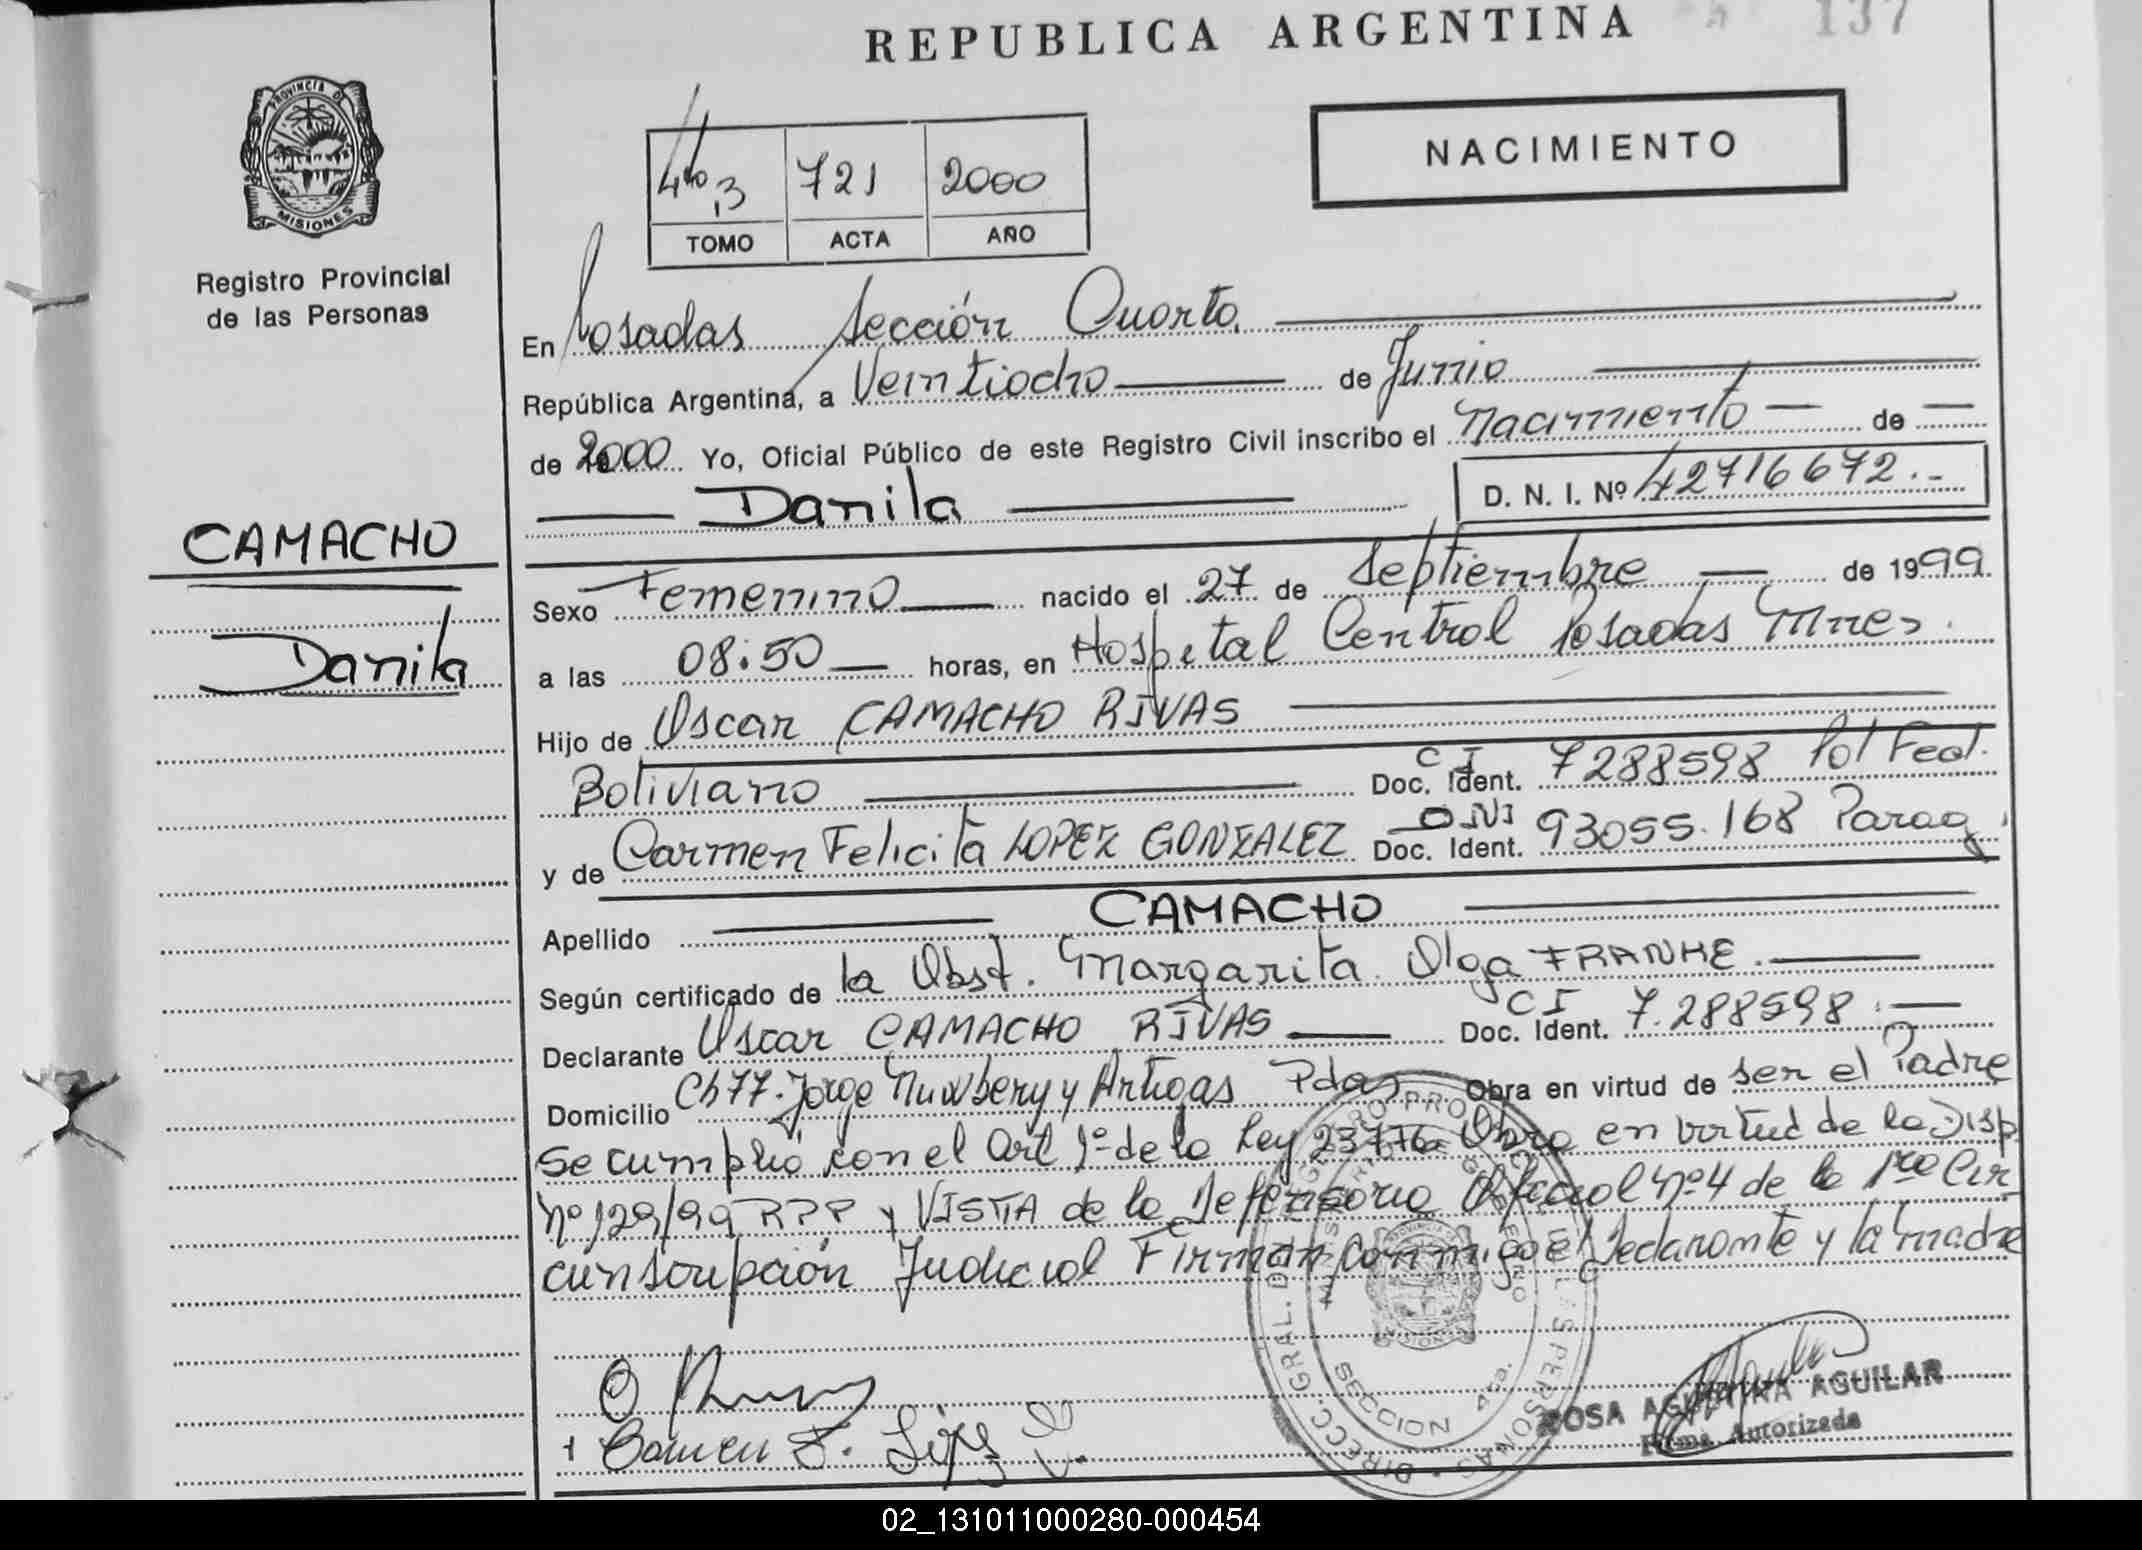 REPUBLICA ARGENTINA
137
PROVINCIA DE
MISIONES
Registro Provincial
de las Personas
4to 3 721 2000
TOMO ACTA AÑO
NACIMIENTO
En Posadas Sección Cuarta
República Argentina, a Veintiocho de Junio
de 2000 Yo, Oficial Público de este Registro Civil inscribo el Nacimiento de
Danila D. N. I. Nº 42716672.-
CAMACHO
Danila
Sexo Femenino nacido el 27 de Septiembre de 1999
a las 08:50 horas, en Hospital Central Posadas Mnes.
Hijo de Oscar CAMACHO RIVAS
Boliviano CI Doc. Ident. 7288598 Pol Fed.
y de Carmen Felicita LOPEZ GONZALEZ DNI Doc. Ident. 93055.168 Parag.
Apellido CAMACHO
Según certificado de la Obst. Margarita Olga FRANKE.
Declarante Oscar CAMACHO RIVAS CI Doc. Ident. 7.288598.
Domicilio Ch 77. Jorge Newbery y Artigas Pdas Obra en virtud de ser el Padre
Se cumplió con el Art 1º de la Ley 23776 Obra en virtud de la Disp
Nº 129/99 RPP y VISTA de la Defensoria Oficial Nº 4 de la 1ra Cir
cunscripción Judicial Firman conmigo el Declarante y la Madre
Carmen F. López
SECCION 4ta.
ROSA AGUSTINA AGUILAR
Firma Autorizada
02_131011000280-000454